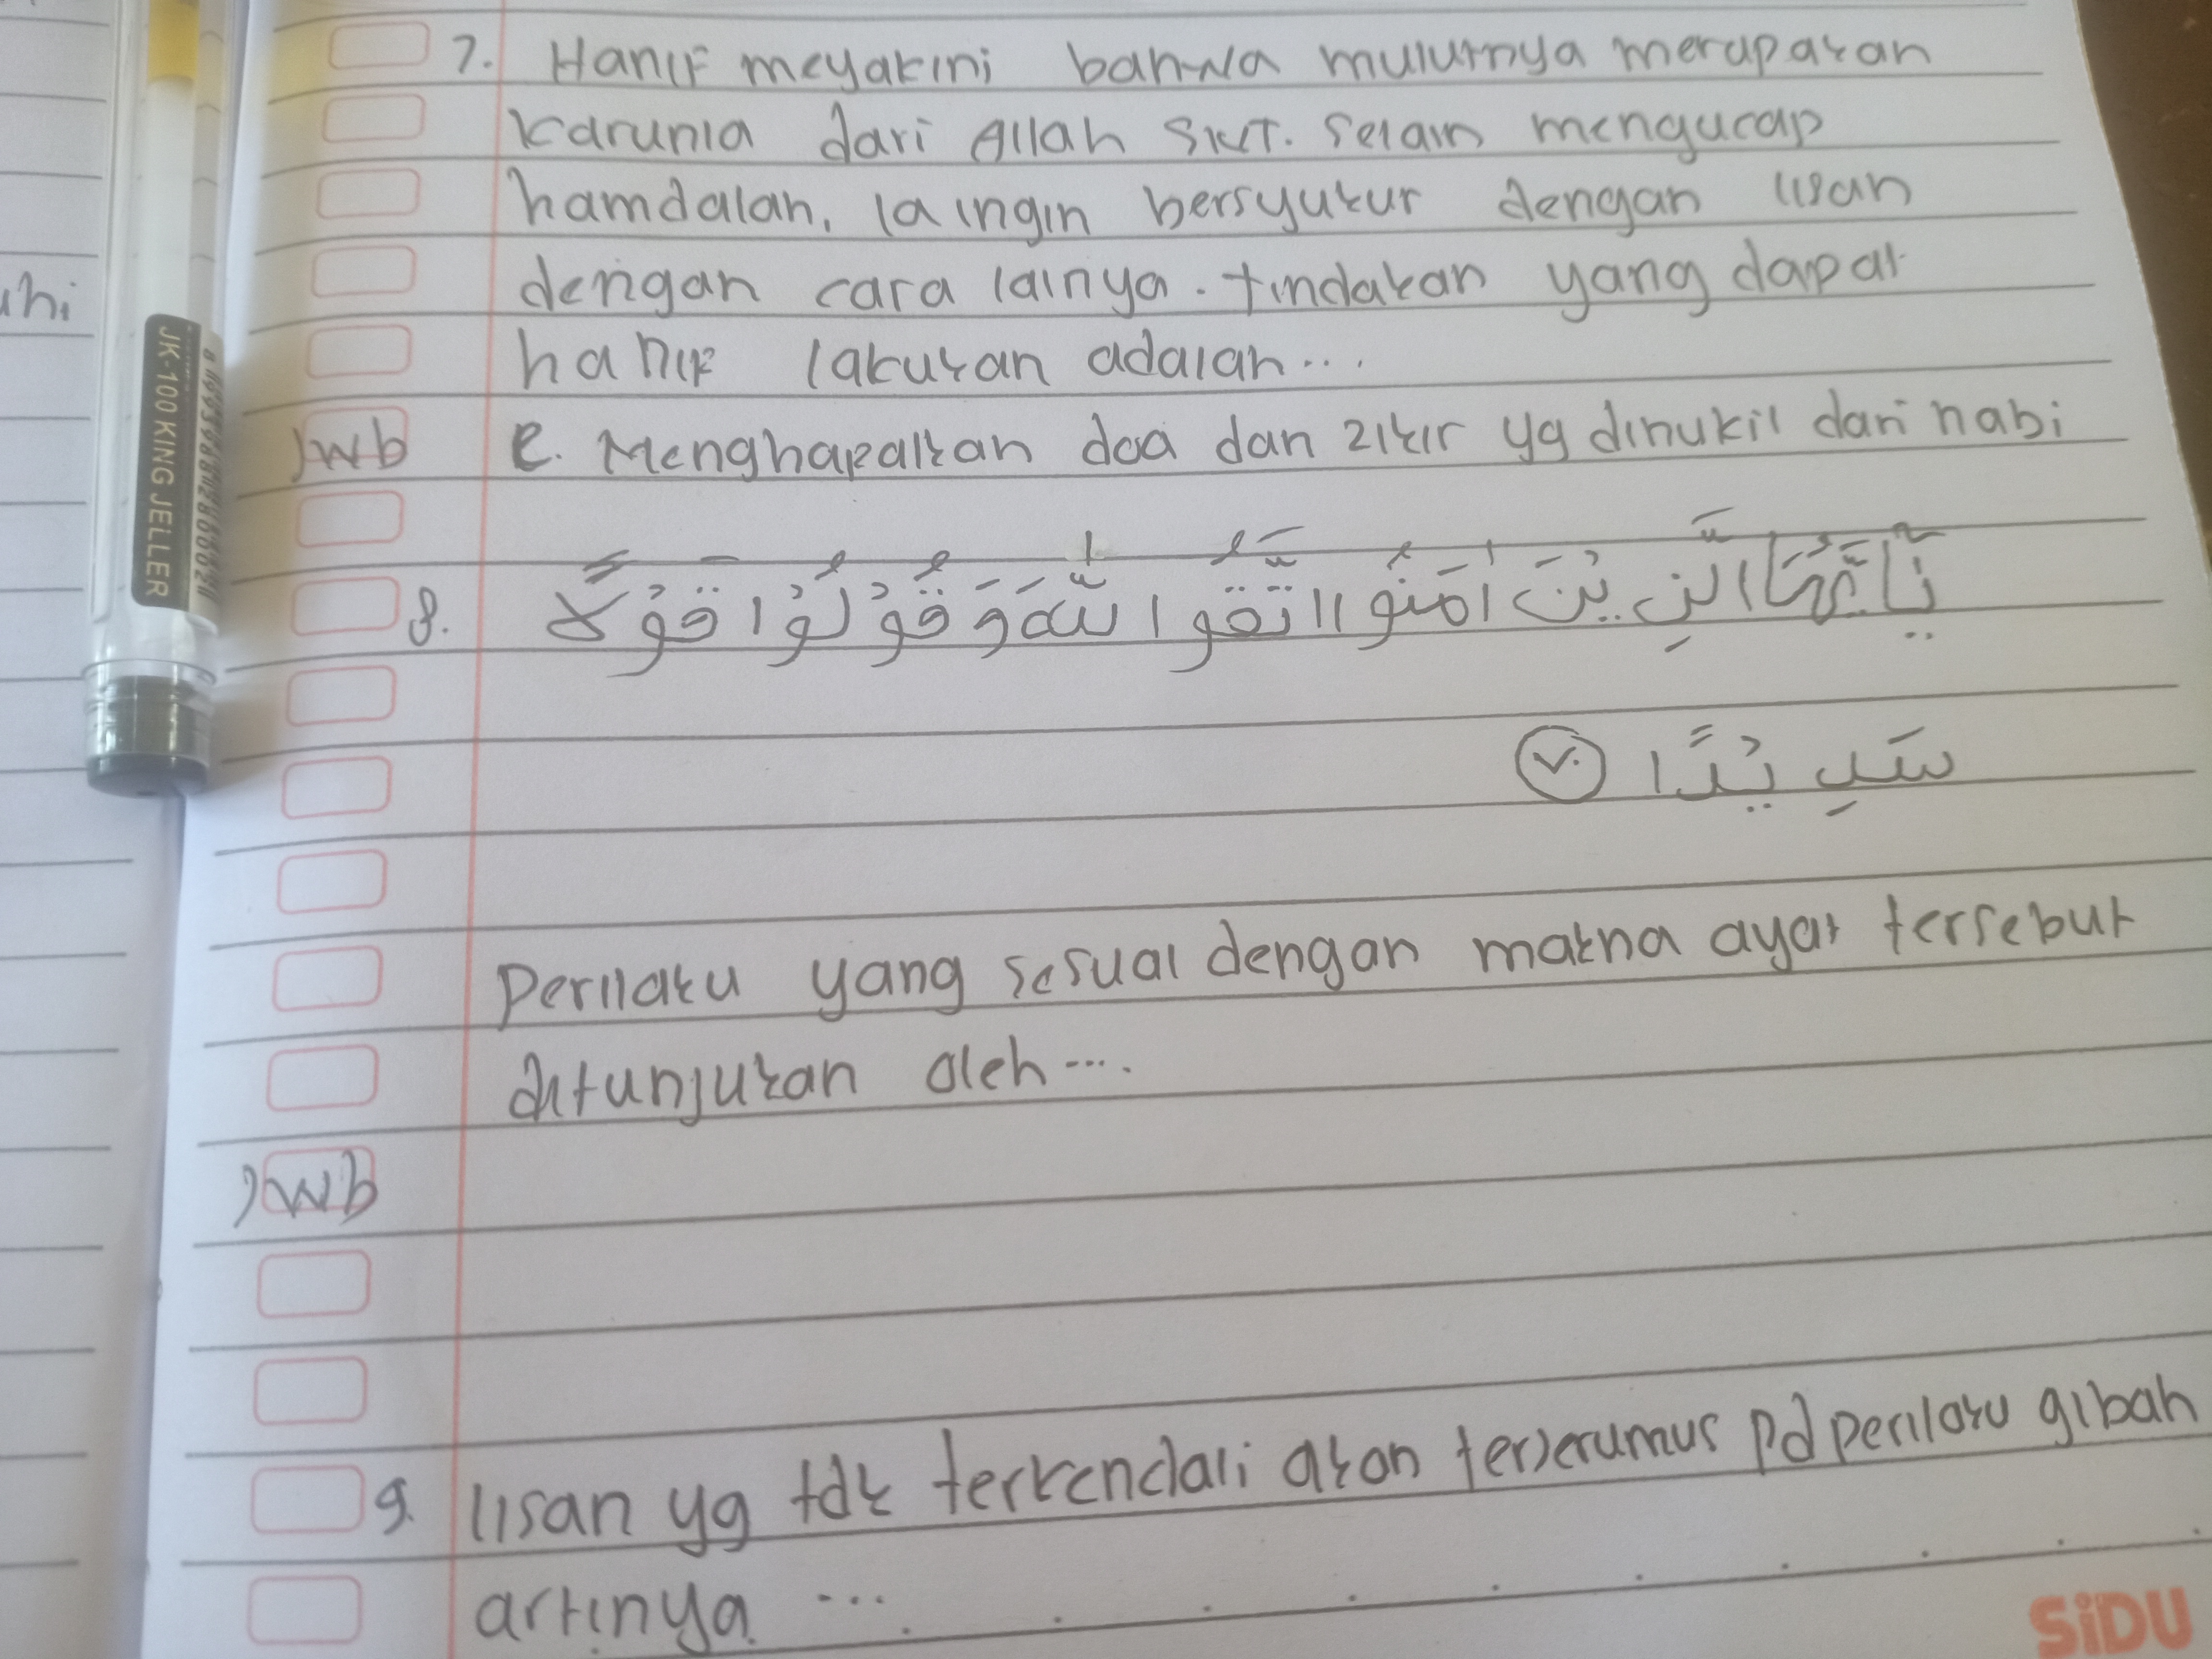 uhi
JK-100 KING JELLER
7. Hanif meyakini bahwa mulutnya merupakan
karunia dari Allah SWT. Selain mengucap
hamdalah, ia ingin bersyukur dengan lisan
dengan cara lainya. tindakan yang dapat
hanif lakukan adalah...
Jwb e. Menghafalkan doa dan zikir yg dinukil dari nabi
8. يٰٓاَيُّهَا الَّذِيْنَ اٰمَنُوا اتَّقُوا اللّٰهَ وَقُوْلُوْا قَوْلًا
سَدِيْدًا ٧٠
Perilaku yang sesuai dengan makna ayat tersebut
ditunjukan oleh....
Jwb
9. lisan yg tdk terkendali akan terjerumus pd perilaku gibah
artinya ...
SiDU